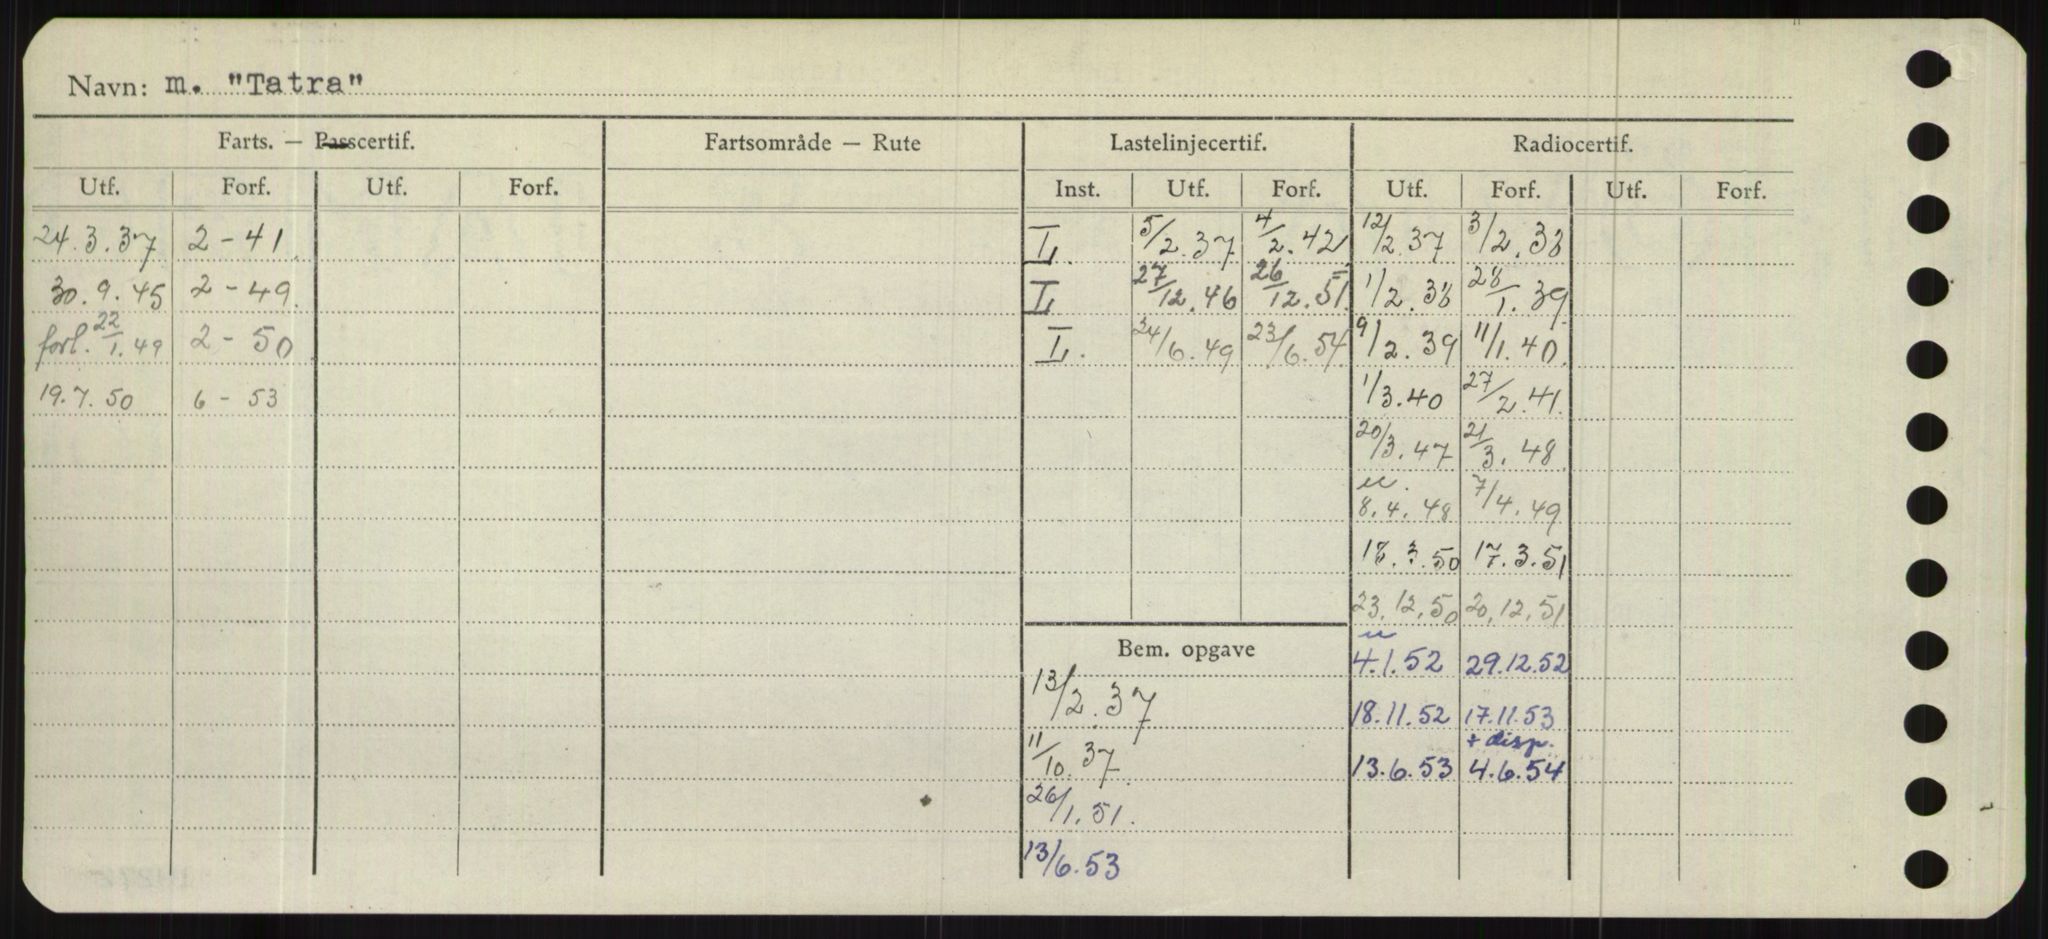 Navn: m. "Tatra"
Farts. — Passcertif. Fartsområde — Rute Lastelinjecertif. Radiocertif.
Utf. Forf. Utf. Forf. Inst. Utf. Forf. Utf. Forf. Utf. Forf.
24.3.37 2-41 L. 5/2.37 4/2.42 12/2.37 3/2.38
30.9.45 2-49. L 27/12.46 26/12.51 1/2.38 28/1.39
forl. 22/1.49 2-50 L. 24/6.49 23/6.54 9/2.39 11/1.40
19.7.50 6-53 1/3.40 27/2.41
20/3.47 21/3.48
u. 8.4.48 7/4.49
18.3.50 17.3.51
23.12.50 20.12.51
Bem. opgave u 4.1.52 29.12.52
13/2.37 18.11.52 17.11.53
11/10.37 13.6.53 + disp. 4.6.54
26/1.51.
13/6.53